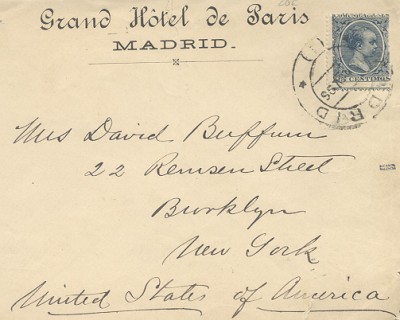 Grand Hôtel de Paris
MADRID.
CENTIMOS
DRID
Mrs David Buffum
22 Remsen Street
Brooklyn
New York
United States of America